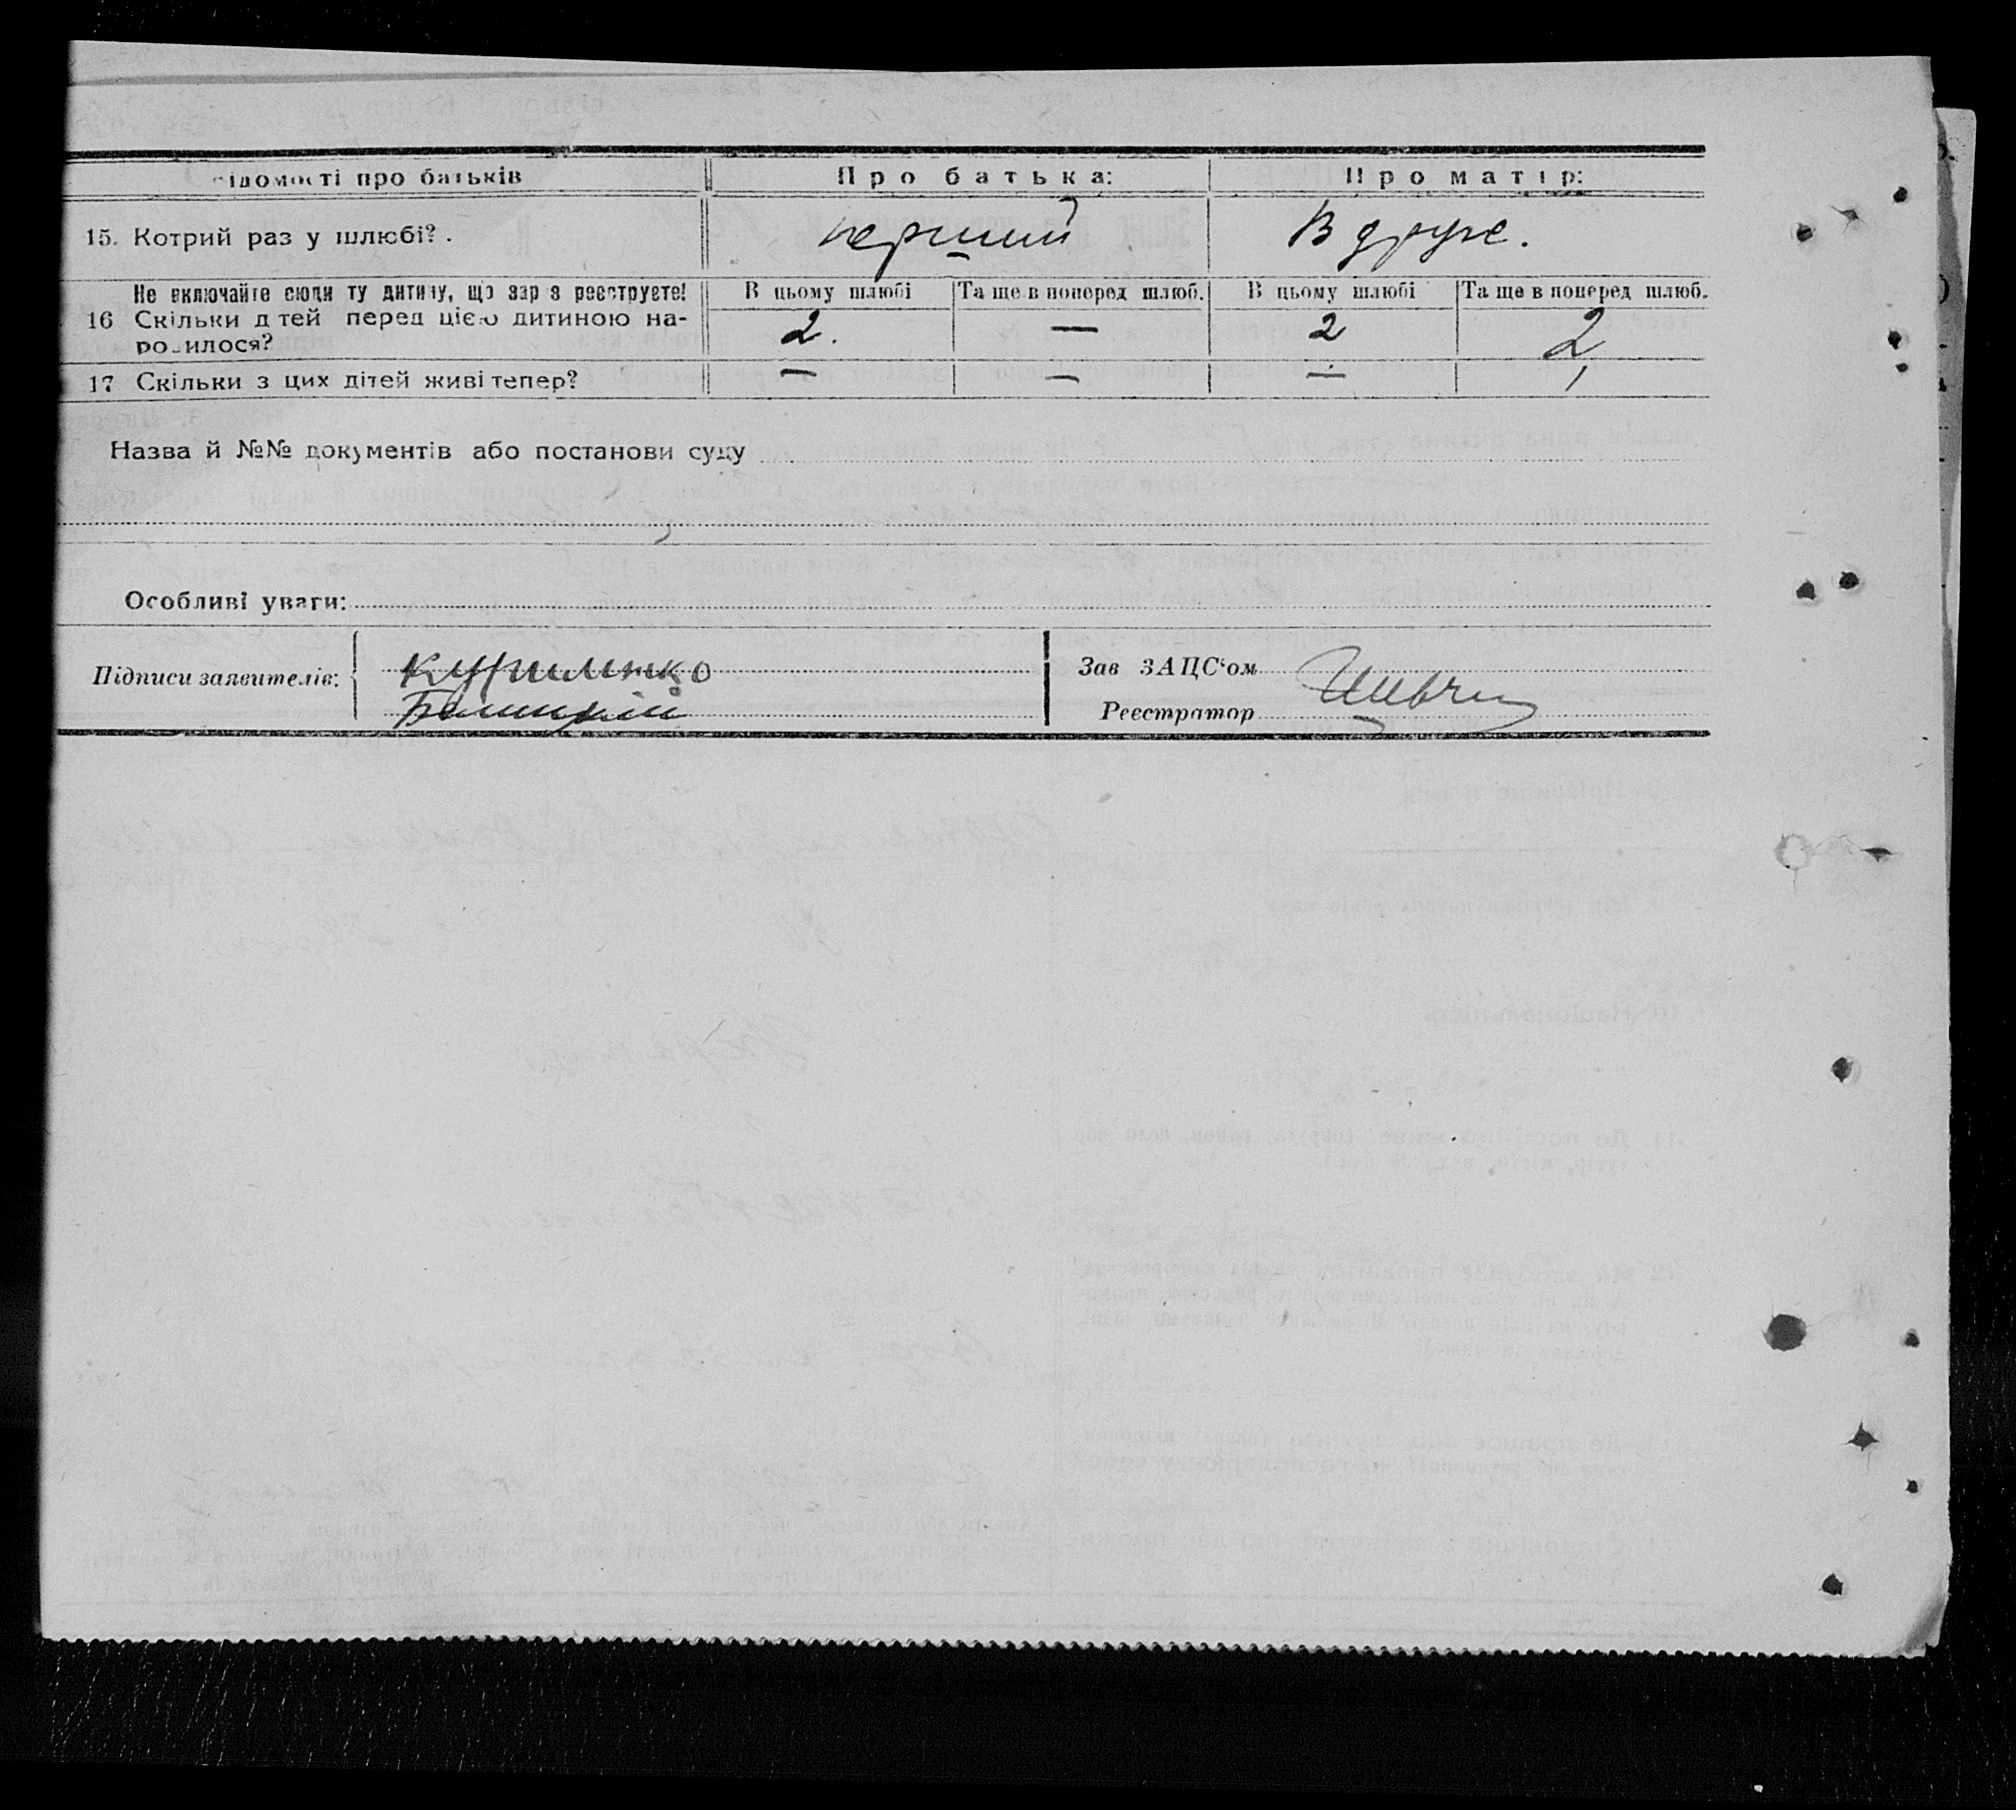 ідомості про батьків Про батька: Про матір:
15. Котрий раз у шлюбі? . перший Вдруге.
Не включайте сюди ту дитину, що зар з реєструєте! В цьому шлюбі Та ще в поперед шлюб. В цьому шлюбі Та ще в поперед шлюб.
16 Скільки д тей перед цією дитиною на-
родилося? 2. — 2 2
17 Скільки з цих дітей живі тепер? — — — 1
Назва й №№ документів або постанови суду
Особливі уваги:
Підписи заявителів: Куриленко
Зав ЗАЦС‘ом
Реєстратор